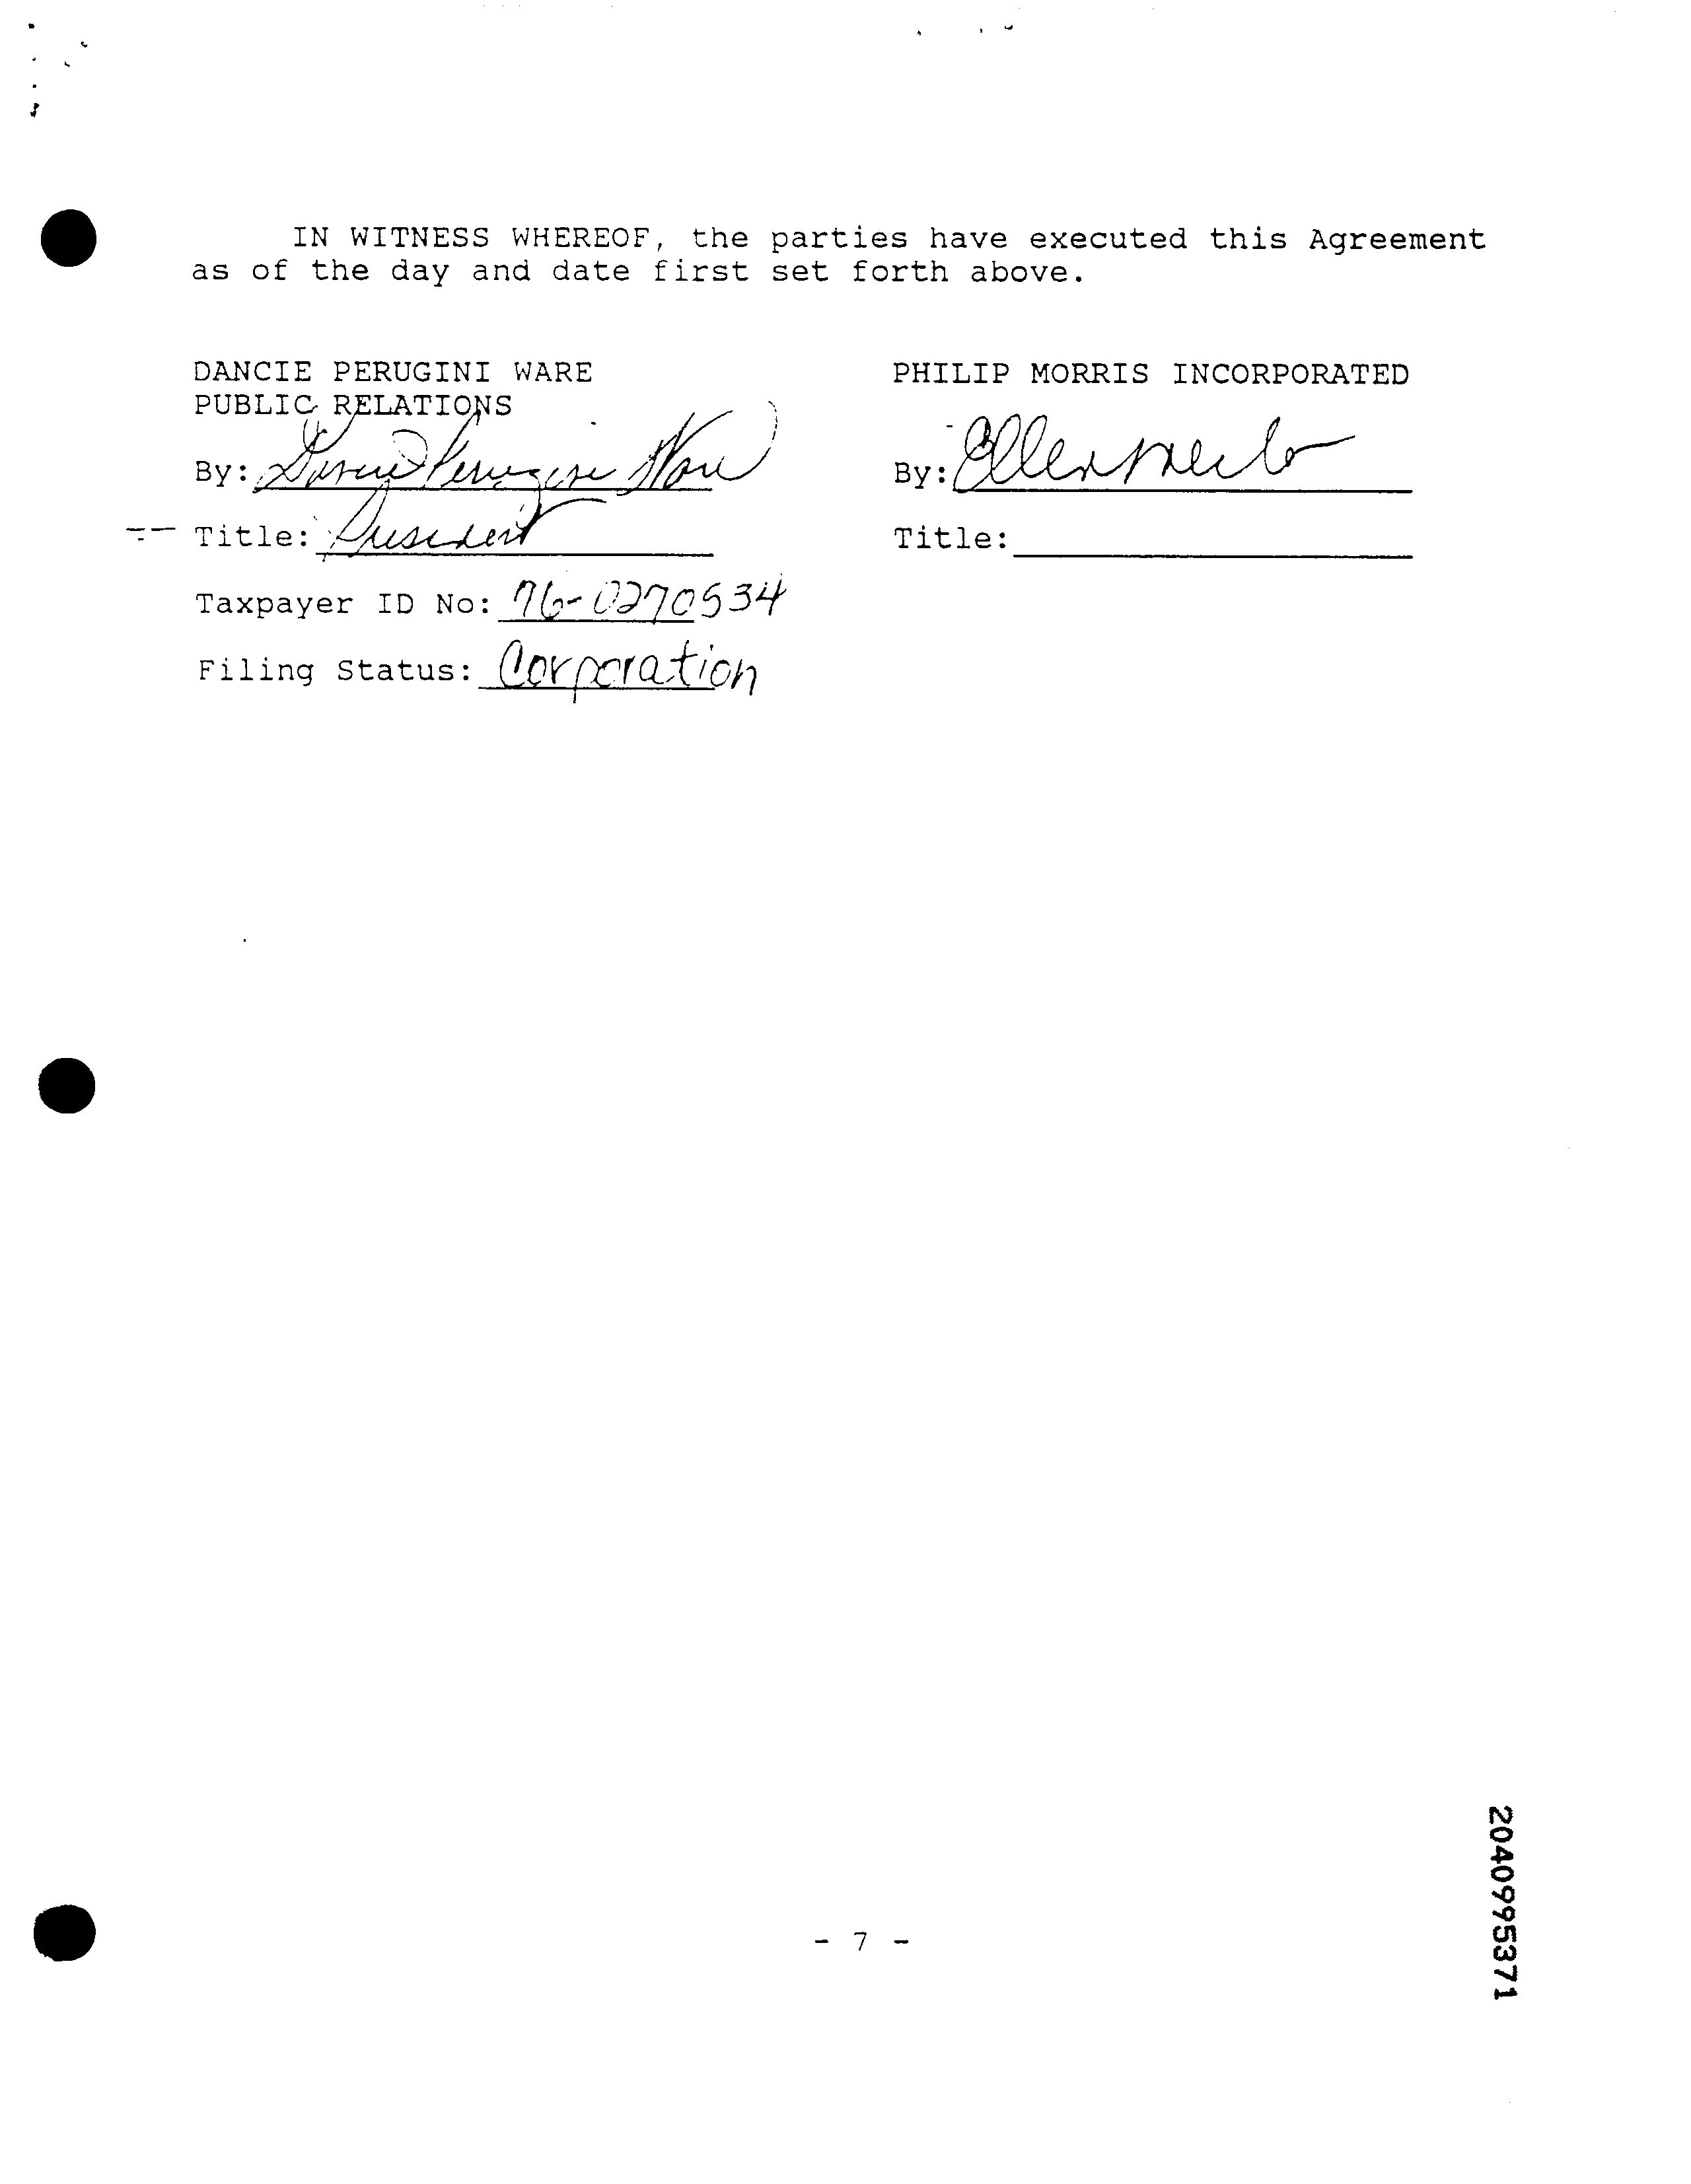 IN WITNESS WHEREOF, the parties have executed this Agreement
as of the day and date first set forth above.
DANCIE PERUGINI WARE
PUBLIC RELATIONS
By: Dancie Perugini Ware
Title: President
Taxpayer ID No: 76-0270534
Filing Status: Corporation
PHILIP MORRIS INCORPORATED
By: Ellen Merlo
Title:
- 7 -
2040995371